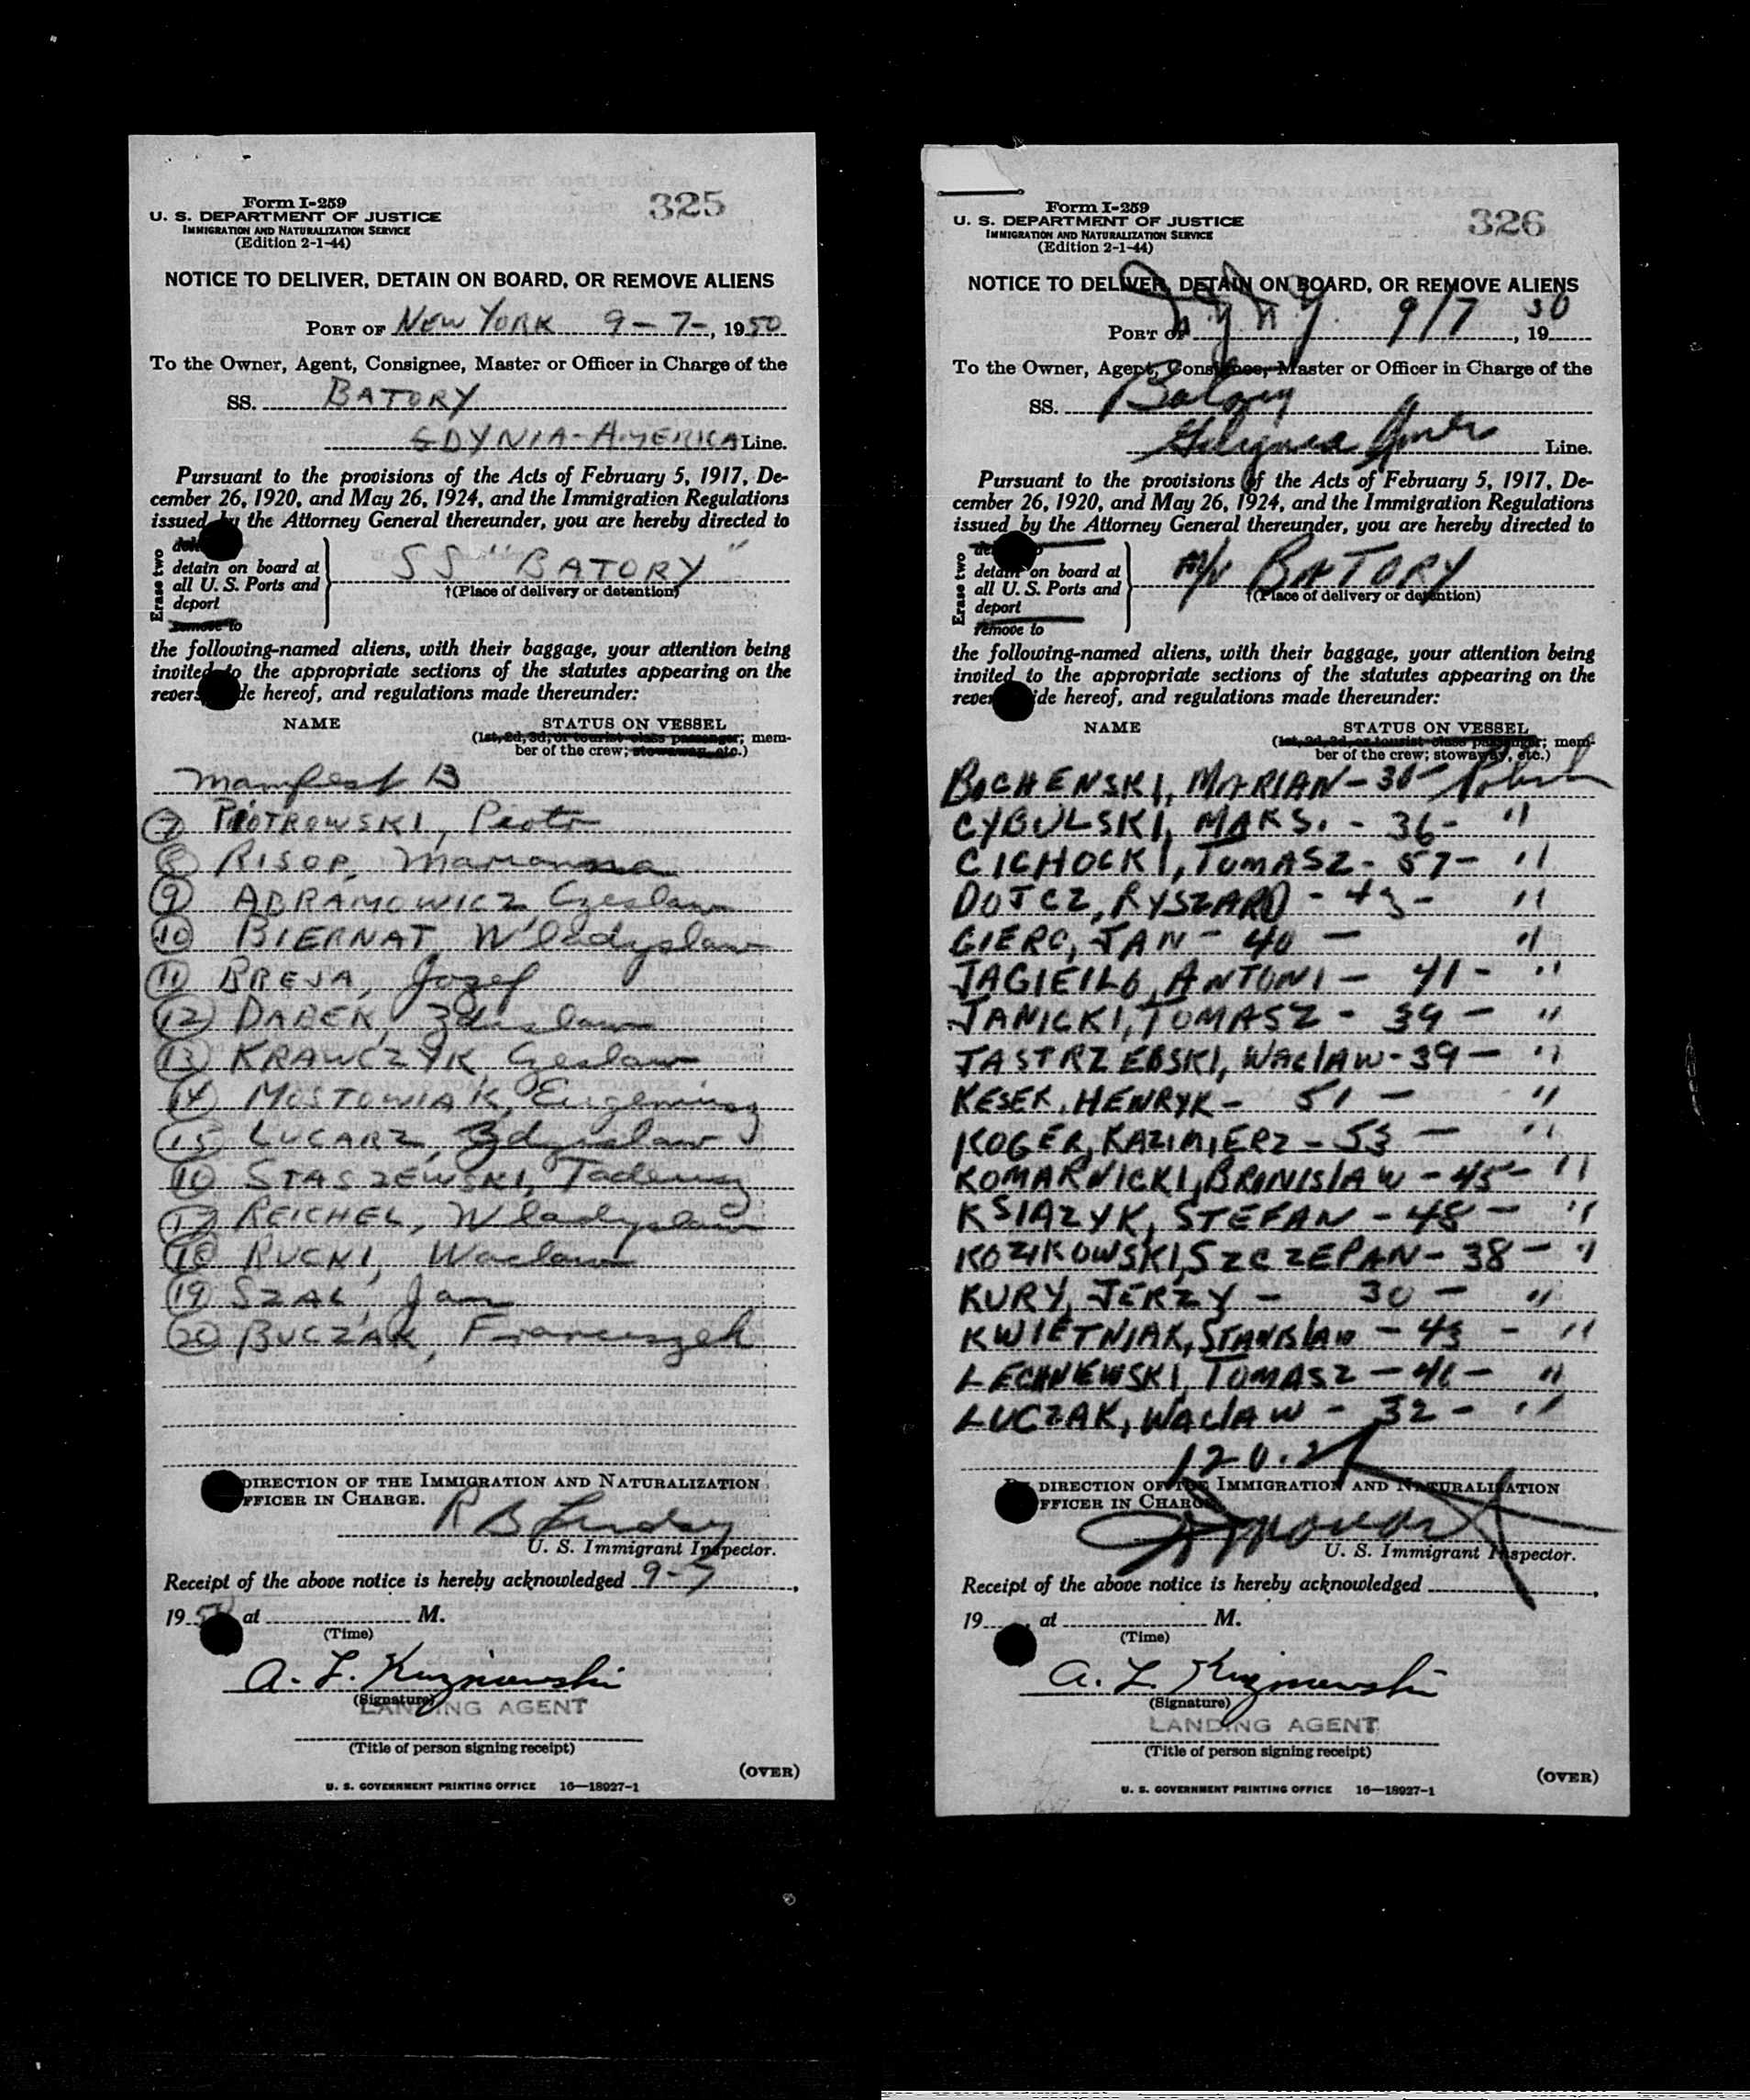 325
Form I-259
U. S. DEPARTMENT OF JUSTICE
IMMIGRATION AND NATURALIZATION SERVICE
(Edition 2-1-44)
NOTICE TO DELIVER, DETAIN ON BOARD, OR REMOVE ALIENS
PORT OF NEW YORK 9-7-, 1950
To the Owner, Agent, Consignee, Master or Officer in Charge of the
SS. BATORY
GDYNIA-AMERICA Line.
Pursuant to the provisions of the Acts of February 5, 1917, De-
cember 26, 1920, and May 26, 1924, and the Immigration Regulations
issued by the Attorney General thereunder, you are hereby directed to
Erase two
detain on board at
all U. S. Ports and
deport
remove to
SS "BATORY"
†(Place of delivery or detention)
the following-named aliens, with their baggage, your attention being
invited to the appropriate sections of the statutes appearing on the
reverse side hereof, and regulations made thereunder:
NAME STATUS ON VESSEL
(1st, 2d, 3d, or tourist class passenger; mem-
ber of the crew; stowaway, etc.)
Manifest B
7 PIOTROWSKI, Piotr
8 RISOP, Marianna
9 ABRAMOWICZ Czeslaw
10 BIERNAT, Wladyslaw
11 BREJA, Jozef
12 DABEK, Zdzislaw
13 KRAWCZYK, Czeslaw
14 MOSTOWIAK, Eugeniusz
15 LUCARZ, Zdzislaw
16 STASZEWSKI, Tadeusz
17 REICHEL, Wladyslaw
18 RUCKI, Waclaw
19 SZAL, Jan
20 BUCZAK, Franciszek
DIRECTION OF THE IMMIGRATION AND NATURALIZATION
OFFICER IN CHARGE.
R B Lindsay
U. S. Immigrant Inspector.
Receipt of the above notice is hereby acknowledged 9-7,
1950 at M.
(Time)
A. L. Kuzniewski
(Signature)
LANDING AGENT
(Title of person signing receipt)
(OVER)
U. S. GOVERNMENT PRINTING OFFICE 16—18927-1
326
Form I-259
U. S. DEPARTMENT OF JUSTICE
IMMIGRATION AND NATURALIZATION SERVICE
(Edition 2-1-44)
NOTICE TO DELIVER, DETAIN ON BOARD, OR REMOVE ALIENS
PORT OF N.Y. N.Y. 9/7, 1950
To the Owner, Agent, Consignee, Master or Officer in Charge of the
SS. Batory
Gdynia Amer Line.
Pursuant to the provisions of the Acts of February 5, 1917, De-
cember 26, 1920, and May 26, 1924, and the Immigration Regulations
issued by the Attorney General thereunder, you are hereby directed to
Erase two
detain on board at
all U. S. Ports and
deport
remove to
M/V BATORY
†(Place of delivery or detention)
the following-named aliens, with their baggage, your attention being
invited to the appropriate sections of the statutes appearing on the
reverse side hereof, and regulations made thereunder:
NAME STATUS ON VESSEL
(1st, 2d, 3d, or tourist class passenger; mem-
ber of the crew; stowaway, etc.)
BOCHENSKI, MARIAN - 38 - Polish
CYBULSKI, MAKS. - 36 - "
CICHOCKI, TOMASZ - 57 - "
DOJCZ, RYSZARD - 43 - "
GIERC, JAN - 40 - "
JAGIELLO, ANTONI - 41 - "
JANICKI, TOMASZ - 39 - "
JASTRZEBSKI, WACLAW - 39 - "
KESEK, HENRYK - 51 - "
KOGER, KAZIMIERZ - 53 - "
KOMARNICKI, BRONISLAW - 45 - "
KSIAZYK, STEFAN - 48 - "
KOZIKOWSKI, SZCZEPAN - 38 - "
KURY, JERZY - 30 - "
KWIETNIAK, STANISLAW - 43 - "
LECHNIEWSKI, TOMASZ - 41 - "
LUCZAK, WACLAW - 32 - "
120.2
DIRECTION OF THE IMMIGRATION AND NATURALIZATION
OFFICER IN CHARGE.
U. S. Immigrant Inspector.
Receipt of the above notice is hereby acknowledged ,
19 , at M.
(Time)
A. L. Kuzniewski
(Signature)
LANDING AGENT
(Title of person signing receipt)
(OVER)
U. S. GOVERNMENT PRINTING OFFICE 16—18927-1